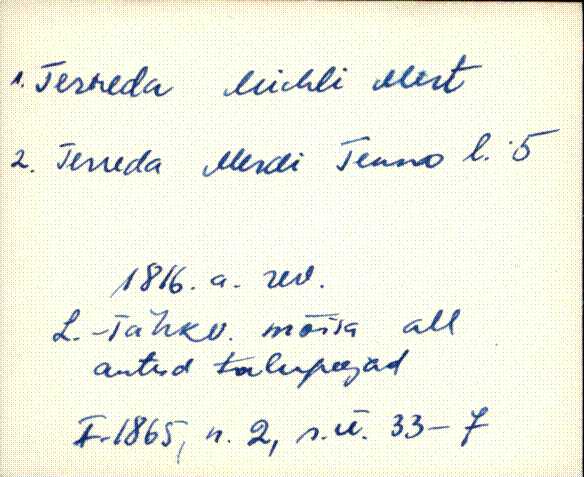 1. Terreda Michli Mert
2. Terreda Merdi Tenno l. 5
1816. a. rev.
L.-Tähkv. mõisa all
antud talupojad
F-1865, n. 2, s.ü. 33-7